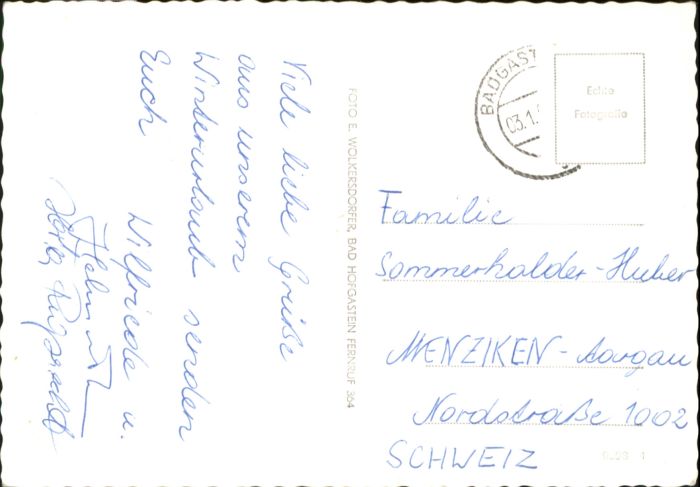 Viele liebe Grüße
aus unserem
Winterurlaub senden
Euch
Wilfriede u.
Helmut
FOTO E. WOLKERSDORFER, BAD HOFGASTEIN FERNRUF 364
BADGAST
03.1.
Echte
Fotografie
Familie
Sommerhalder-Huber
MENZIKEN-Aargau
Nordstraße 1002
SCHWEIZ